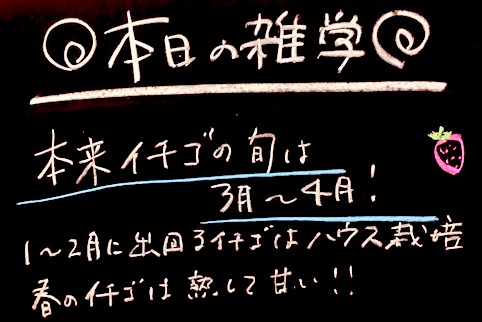 本日の雑学
本来イチゴの旬は
3月〜4月!
1〜2月に出回るイチゴはハウス栽培
春のイチゴは熟して甘い!!